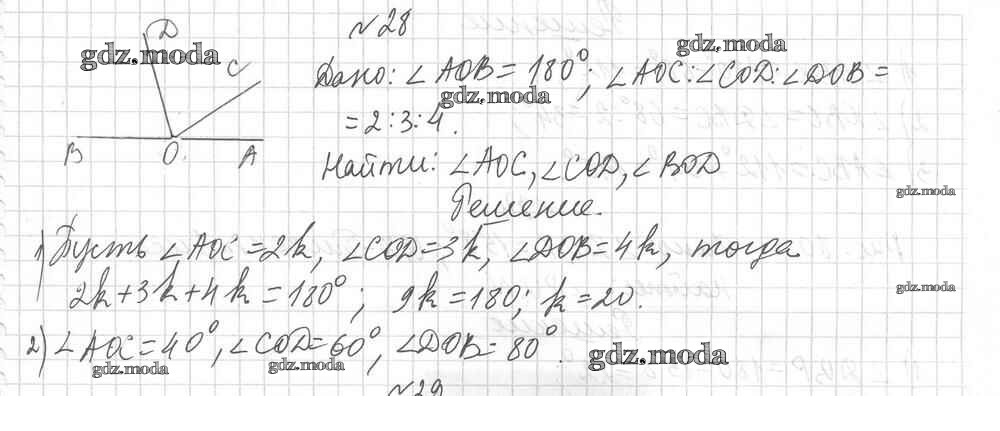 №28
D
gdz.moda
gdz.moda
C
Дано: ∠AOB = 180°; ∠AOC:∠COD:∠DOB =
gdz.moda
= 2:3:4.
B O A
Найти: ∠AOC, ∠COD, ∠BOD
gdz.moda
Решение.
1) Пусть ∠AOC = 2k, ∠COD = 3k, ∠DOB = 4k, тогда
2k + 3k + 4k = 180°; 9k = 180; k = 20.
gdz.moda
2) ∠AOC = 40°, ∠COD = 60°, ∠DOB = 80°.
gdz.moda
gdz.moda
gdz.moda
№29